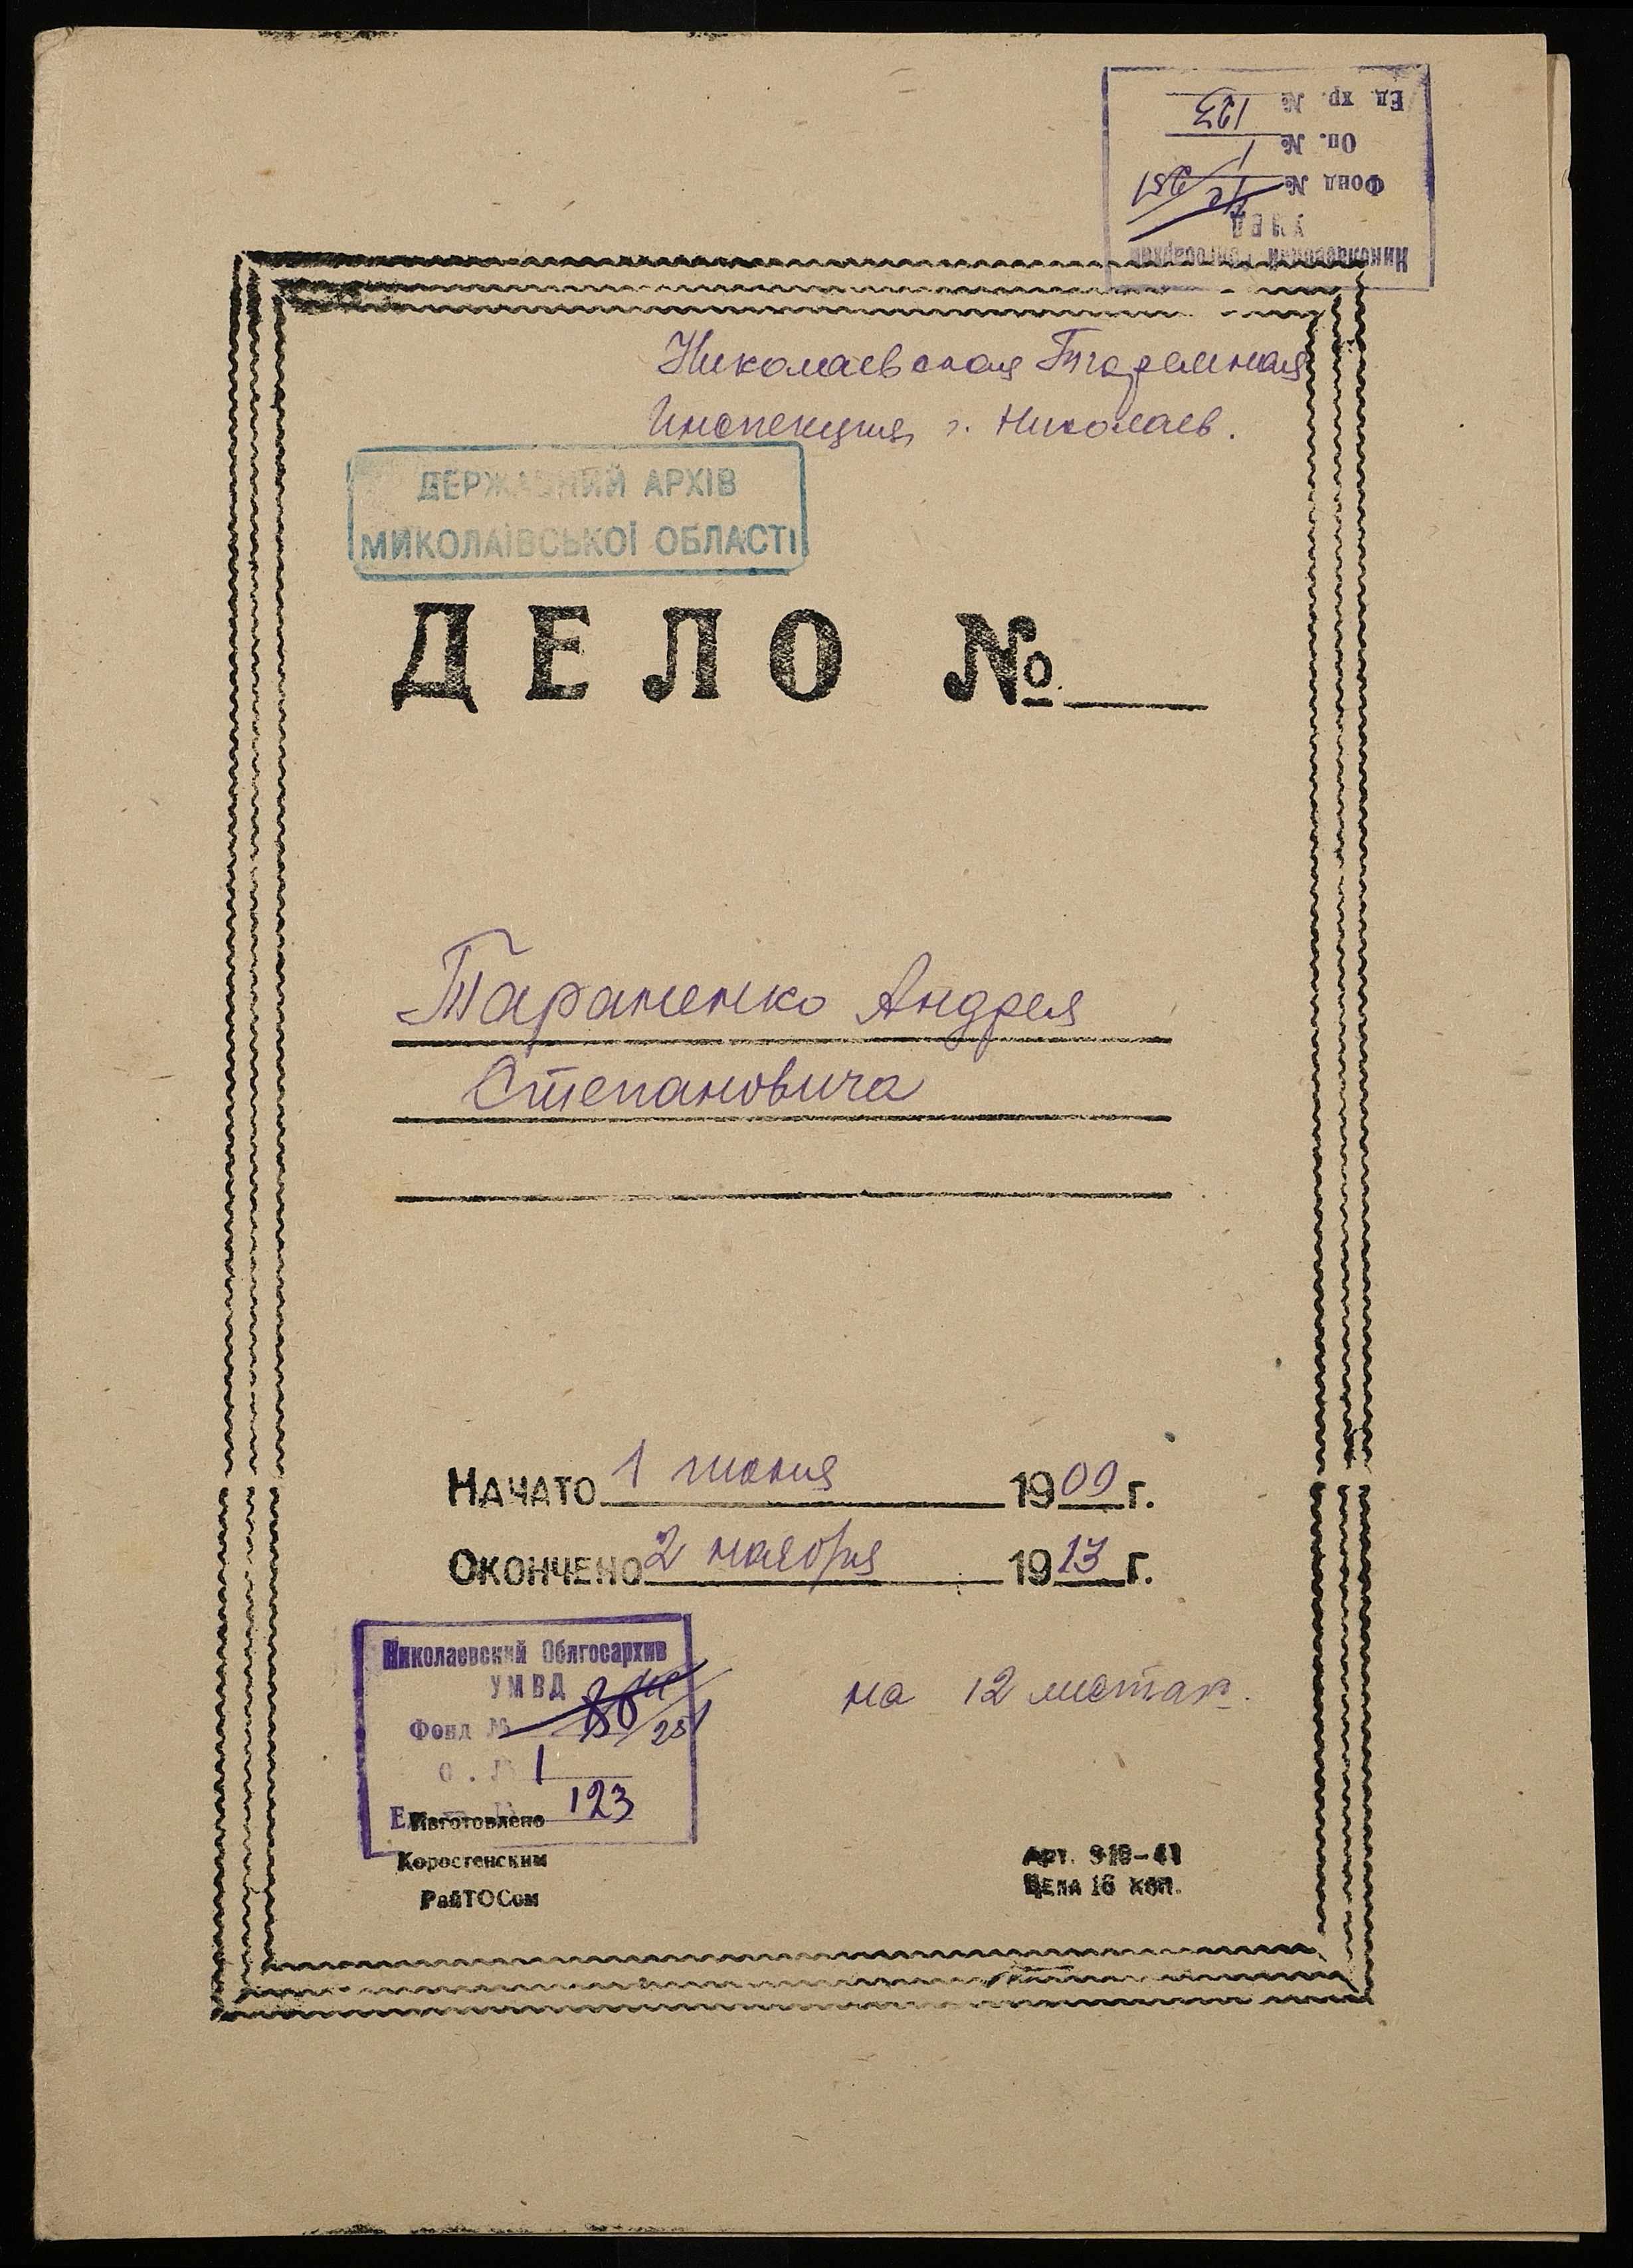 Ед. хр. № 123
Оп. № 1
Фонд № 251
УМВД
Николаевский Облгосархив
Николаевская Тюремная
Инспекция г. Николаев.
ДЕРЖАВНИЙ АРХІВ
МИКОЛАЇВСЬКОЇ ОБЛАСТІ
ДЕЛО №
Тараненко Андрея
Степановича
НАЧАТО 1 июня 1909 г.
ОКОНЧЕНО 2 ноября 1913 г.
Николаевский Облгосархив
УМВД
Фонд № 251
1
123
на 12 листах.
Изготовлено
Коростенским
РайТОСом
Арт. 910-41
Цена 16 коп.